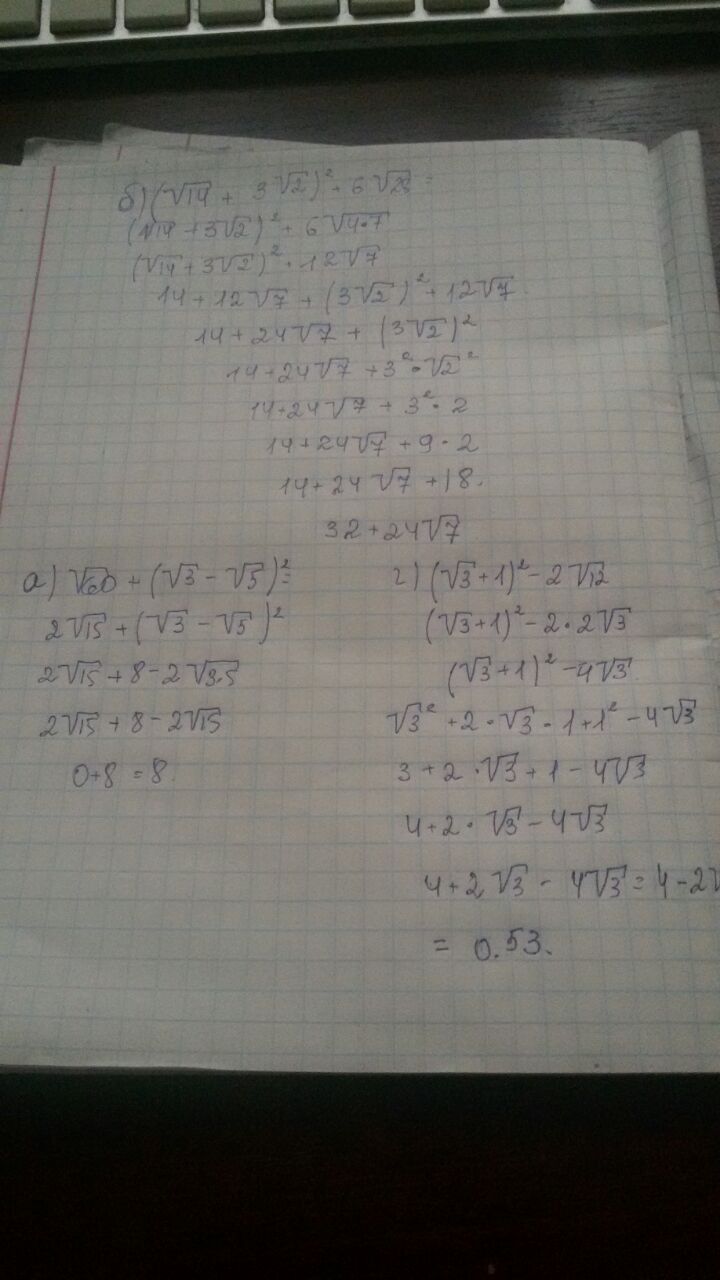 б) (√14 + 3√2)² + 6√28 =
(√14 + 3√2)² + 6√4·7
(√14 + 3√2)² · 12√7
14 + 12√7 + (3√2)² + 12√7
14 + 24√7 + (3√2)²
14 + 24√7 + 3² · √2²
14 + 24√7 + 3² · 2
14 + 24√7 + 9 · 2
14 + 24√7 + 18.
32 + 24√7
а) √60 + (√3 − √5)² =
2√15 + (√3 − √5)²
2√15 + 8 − 2√3.5
2√15 + 8 − 2√15
0 + 8 = 8.
г) (√3 + 1)² − 2√12
(√3 + 1)² − 2 · 2√3
(√3 + 1)² − 4√3
√3² + 2 · √3 · 1 + 1² − 4√3
3 + 2 · √3 + 1 − 4√3
4 + 2 · √3 − 4√3
4 + 2√3 − 4√3 = 4 − 2√
= 0.53.